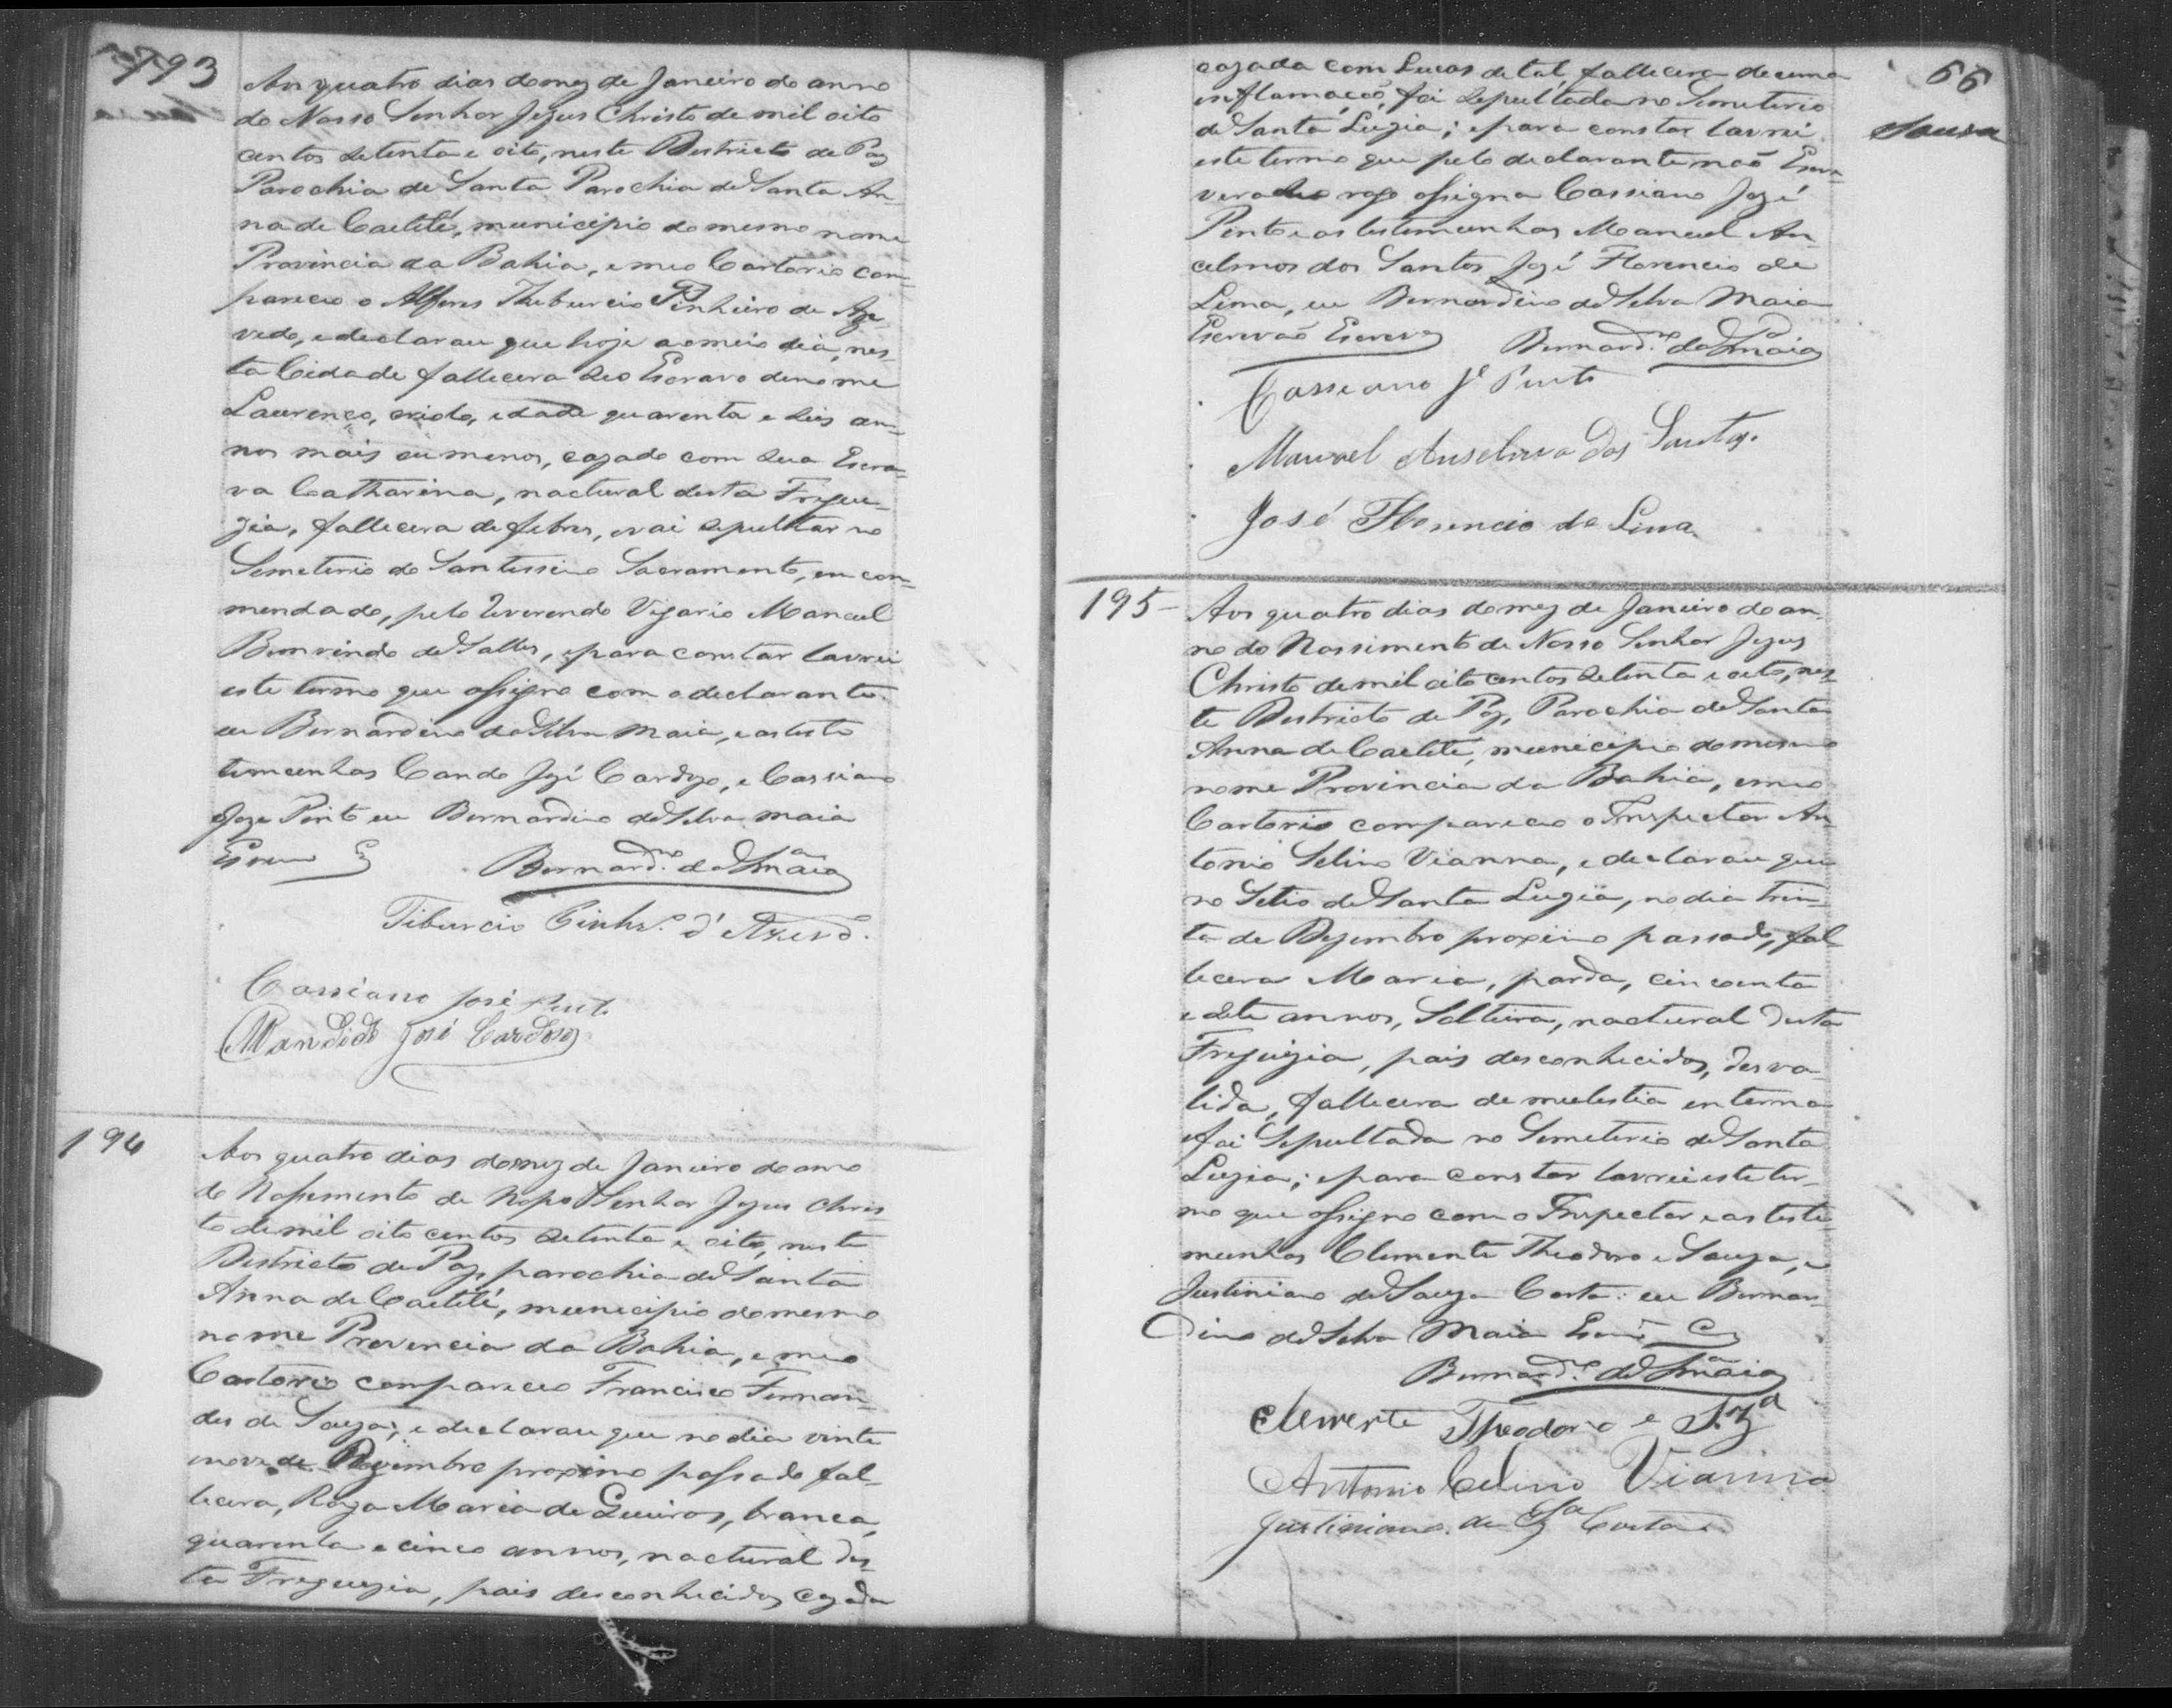 193
Aos quatro dias do mez de Janeiro do anno
do Nosso Senhor Jezus Christo de mil oito
centos setenta e oito, neste Destricto de Paz
Parochia de Santa Parochia de Santa An-
na de Caetité, municipio do mesmo nome
Provincia da Bahia, em meo Cartorio com-
pareceo o Alferes Theburcio Pinheiro de Aze-
vedo, e declarau que hoje ao meio dia, nes-
ta Cidade fallecera seo Escravo de nome
Laurenço, criolo, idade quarenta e seis an-
nos mais ou menos, cazado com sua Escra-
va Catharina, nactural desta Fregue-
zia, fallecera de febres, e vai sepultar no
Semeterio do Santissimo Sacramento, encom-
mendado, pelo Reverendo Vigario Manoel
Bemvindo de Salles, e para constar lavrei
este termo que assigno com o declarante
eu Bernardino da Silva Maia, e as teste
temunhas Cando Jozé Cardozo, e Cassiano
Joze Pinto eu Bernardino da Silva Maia
Escrevi
Bernard.no da S.a Maia
Tiburcio Pinhr.o d'Azevd.o
Cassiano José Pint.
Candido José Cardoso
194
Aos quatro dias do mez de Janeiro do anno
do Nassimento de Nosso Senhor Jezus Chris-
to de mil oito centos setenta e oito, neste
Destricto de Paz, parochia de Santa
Anna de Caetité, municipio do mesmo
nome Provencia da Bahia, e meo
Cartorio compareceo Francisco Fernan-
des de Souza; e declarau que no dia vinte
nove de Dezembro proximo passado fal-
lecera, Roza Maria de Queiros, branca,
quarenta e cinco annos, nactural des-
ta Freguezia, pais desconhecidos cazada
66
Souza
cazada com Lucas de tal, fallecera de uma
inflamação, foi sepultada no Semeterio
de Santa Luzia; e para constar lavrei
este termo que pelo declarante não Escre-
ver a seo rogo assigna Cassiano Jozé
Pinto e as testemunhas Manoel An-
celmos dos Santos Jozé Florencio de
Lima, eu Bernardino da Silva Maia
Escrevão Escrevy
Bernard.no da S.a Maia
Cassiano J.e Pinto
Manoel Anselmo dos Santos.
José Florencio de Lima
195-
Aos quatro dias do mez de Janeiro do an-
no do Nassimento de Nosso Senhor Jezus
Christo de mil oito centos setenta e oito, nes-
te Destricto de Paz, Parochia de Santa
Anna de Caetité, municipio do mesmo
nome Provincia da Bahia, e meo
Cartorio compareceo o Inspector An-
tonio Selino Vianna, e declarau que
no Setio de Santa Luzia, no dia trin-
ta de Dezembro proximo passado, fal-
lecera Maria, parda, cincoenta
e sete annos, Solteira, nactural desta
Freguizia, pais desconhecidos, desva-
lida, fallecera de mulestia enterna
e foi Sepultada no Semeterio de Santa
Luzia; e para constar lavrei este ter-
mo que assigno com o Inspector e as teste-
munhas Clemente Theodoro e Souza, e
Justiniano de Souza Costa: eu Bernar-
dino da Silva Maia Escrevi
Bernard.no da S.a Maia
Clemente Theodoro e Sz.a
Antonio Celino Vianna
Justiniano de Sz.a Costa